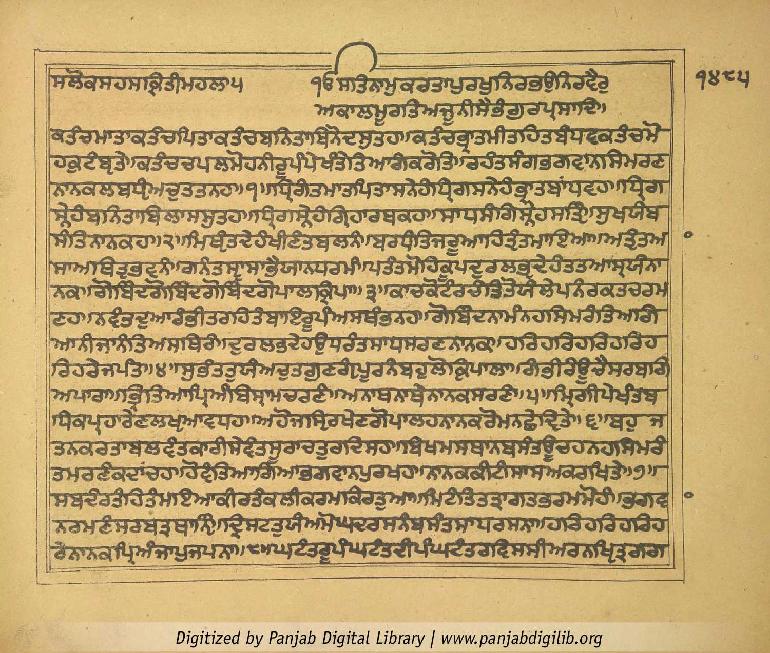 ਸਲੋਕਸਹਸਕ੍ਰਿਤੀਮਹਲਾ੫ ੴਸਤਿਨਾਮੁਕਰਤਾਪੁਰਖੁਨਿਰਭਉਨਿਰਵੈਰੁ ੧੪੮੫
ਅਕਾਲਮੂਰਤਿਅਜੂਨੀਸੈਭੰਗੁਰਪ੍ਰਸਾਦਿ॥
ਕਤੰਚਮਾਤਾਕਤੰਚਪਿਤਾਕਤੰਚਬਨਿਤਾਬਿਨੋਦਸੁਤਹ॥ਕਤੰਚਭ੍ਰਾਤਮੀਤਹਿਤਬੰਧਵਕਤੰਚਮੋ
ਹਕੁਟੰਬ੍ਯਤੇ॥ਕਤੰਚਚਪਲਮੋਹਨੀਰੂਪੰਪੇਖੰਤੇਤਿਆਗੰਕਰੋਤਿ॥ਰਹੰਤਸੰਗਭਗਵਾਨਸਿਮਰਣ
ਨਾਨਕਲਬਧੵੰਅਚੁਤਤਨਹ॥੧॥ਧ੍ਰਿਗੰਤਮਾਤਪਿਤਾਸਨੇਹੰਧ੍ਰਿਗਸਨੇਹੰਭ੍ਰਾਤਬਾਂਧਵਹ॥ਧ੍ਰਿਗ
ਸ੍ਨੇਹੰਬਨਿਤਾਬਿਲਾਸਸੁਤਹ॥ਧ੍ਰਿਗਸ੍ਨੇਹੰਗ੍ਰਿਹਾਰਥਕਹ॥ਸਾਧਸੰਗਸ੍ਨੇਹਸਤੵੰ॥ਸੁਖਯੰਬ
ਸੰਤਿਨਾਨਕਹ॥੨॥ਮਿਥੵੰਤਦੇਹੰਖੀਣੰਤਬਲਨੰ॥ਬਰਧੰਤਿਜਰੂਆਹਿਤੵੰਤਮਾਇਆ॥ਅਤੵੰਤਅ
ਸਾਆਥਿਤੵਭਵਨੰ॥ਗਨੰਤਸ੍ਵਾਸਾਭੈਯਾਨਧਰਮੰ॥ਪਤੰਤਮੋਹਕੂਪਦੁਰਲਭੵਦੇਹੰਤਤਆਸ੍ਰਯੰਨਾ
ਨਕ॥ਗੋਬਿੰਦਗੋਬਿੰਦਗੋਬਿੰਦਗੋਪਾਲਕ੍ਰਿਪਾ॥੩॥ਕਾਚਕੋਟੰਰਚੰਤਿਤੋਯੰਲੇਪਨੰਰਕਤਚਰਮ
ਣਹ॥ਨਵੰਤਦੁਆਰੰਭੀਤਰਹਿਤੰਬਾਇਰੂਪੰਅਸਥੰਭਨਹ॥ਗੋਬਿੰਦਨਾਮੰਨਹਸਿਮਰੰਤਿਅਗਿ
ਆਨੀਜਾਨੰਤਿਅਸਥਿਰੰ॥ਦੁਰਲਭਦੇਹਉਧਰੰਤਸਾਧਸਰਣਨਾਨਕ॥ਹਰਿਹਰਿਹਰਿਹਰਿਹ
ਰਿਹਰੇਜਪੰਤਿ॥੪॥ਸੁਭੰਤਤੁਯੰਅਚੁਤਗੁਣਗੵੰਪੂਰਨੰਬਹੁਲੋਕ੍ਰਿਪਾਲਾ॥ਗੰਭੀਰੰਊਚੈਸਰਬਗਿ
ਅਪਾਰਾ॥ਭ੍ਰਿਤਿਆਪ੍ਰਿਅੰਬਿਸ੍ਰਾਮਚਰਣੰ॥ਅਨਾਥਨਾਥੇਨਾਨਕਸਰਣੰ॥੫॥ਮ੍ਰਿਗੀਪੇਖੰਤਬ
ਧਿਕਪ੍ਰਹਾਰੇਣਲਖੵਆਵਧਹ॥ਅਹੋਜਸੵਰਖੇਣਗੋਪਾਲਹਨਾਨਕਰੋਮਨਛੇਦੵਤੇ॥੬॥ਬਹੁਜ
ਤਨਕਰਤਾਬਲਵੰਤਕਾਰੀਸੇਵੰਤਸੂਰਾਚਤੁਰਦਿਸਹ॥ਬਿਖਮਸਥਾਨਬਸੰਤਊਚਹਨਹਸਿਮਰੰ
ਤਮਰਣੰਕਦਾਂਚਹ॥ਹੋਵੰਤਿਆਗਿਆਭਗਵਾਨਪੁਰਖਹ॥ਨਾਨਕਕੀਟੀਸਾਸਅਕਰਖਤੇ॥੭॥
ਸਬਦੰਰਤੰਹਿਤੰਮਾਇਆਕੀਰਤੰਕਲੀਕਰਮਕ੍ਰਿਤੁਆ॥ਮਿਟੰਤਿਤਤ੍ਰਾਗਤਭਰਮਮੋਹੰ॥ਭਗਵ
ਨਰਮਣੰਸਰਬਤ੍ਰਥਾਨੵੰ॥ਦ੍ਰਿਸਟਤੁਯੰਅਮੋਘਦਰਸਨੰਬਸੰਤਸਾਧਰਸਨਾ॥ਹਰਿਹਰਿਹਰਿਹ
ਰੇਨਾਨਕਪ੍ਰਿਅੰਜਾਪੁਜਪਨਾ॥੮॥ਘਟੰਤਰੂਪੰਘਟੰਤਦੀਪੰਘਟੰਤਰਵਿਸਸੀਅਰਨਖੵਤ੍ਰਗਗ
Digitized by Panjab Digital Library | www.panjabdigilib.org